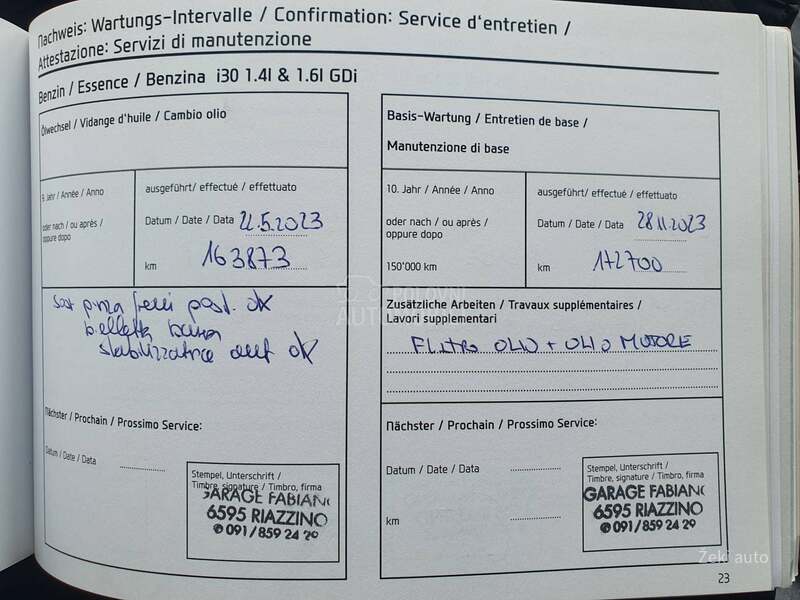 Nachweis: Wartungs-Intervalle / Confirmation: Service d'entretien /
Attestazione: Servizi di manutenzione
Benzin / Essence / Benzina i30 1.4l & 1.6l GDi
Ölwechsel / Vidange d'huile / Cambio olio
9. Jahr / Année / Anno
oder nach / ou après /
oppure dopo
ausgeführt/ effectué / effettuato
Datum / Date / Data 22.5.2023
km 163873
post. ok
stabilizzatrice ok
Nächster / Prochain / Prossimo Service:
Datum / Date / Data
Stempel, Unterschrift /
Timbre, signature / Timbro, firma
GARAGE FABIANO
6595 RIAZZINO
✆ 091/859 24 29
Basis-Wartung / Entretien de base /
Manutenzione di base
10. Jahr / Année / Anno
oder nach / ou après /
oppure dopo
150'000 km
ausgeführt/ effectué / effettuato
Datum / Date / Data 28.11.2023
km 172700
Zusätzliche Arbeiten / Travaux supplémentaires /
Lavori supplementari
FILTRO OLIO + OLIO MOTORE
Nächster / Prochain / Prossimo Service:
Datum / Date / Data
km
Stempel, Unterschrift /
Timbre, signature / Timbro, firma
GARAGE FABIANO
6595 RIAZZINO
✆ 091/859 24 29
Zeki auto
23